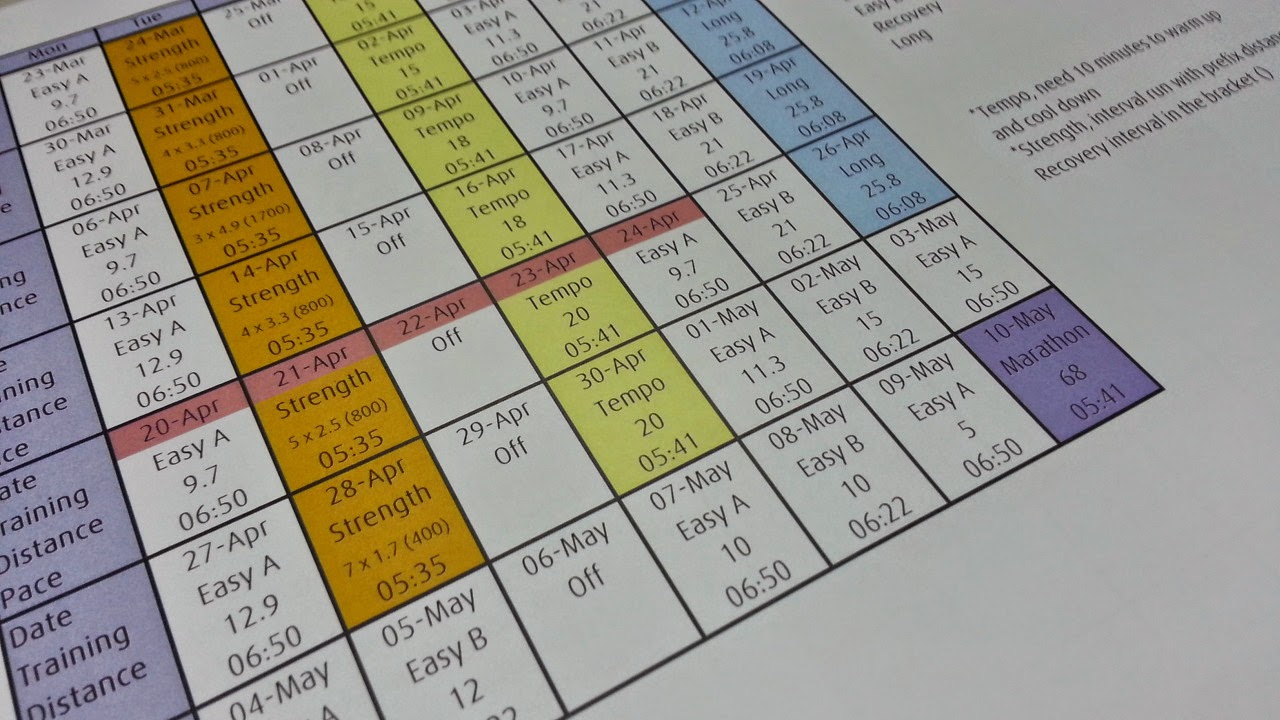 Mon
Tue
23-Mar
Easy A
9.7
06:50
24-Mar
Strength
5 x 2.5 (800)
05:35
25-Mar
Off
15
05:41
03-Apr
Easy A
11.3
06:50
21
06:22
12-Apr
Long
25.8
06:08
30-Mar
Easy A
12.9
06:50
31-Mar
Strength
4 x 3.3 (800)
05:35
01-Apr
Off
02-Apr
Tempo
15
05:41
10-Apr
Easy A
9.7
06:50
11-Apr
Easy B
21
06:22
19-Apr
Long
25.8
06:08
06-Apr
Easy A
9.7
06:50
07-Apr
Strength
3 x 4.9 (1700)
05:35
08-Apr
Off
09-Apr
Tempo
18
05:41
17-Apr
Easy A
11.3
06:50
18-Apr
Easy B
21
06:22
26-Apr
Long
25.8
06:08
13-Apr
Easy A
12.9
06:50
14-Apr
Strength
4 x 3.3 (800)
05:35
15-Apr
Off
16-Apr
Tempo
18
05:41
24-Apr
Easy A
9.7
06:50
25-Apr
Easy B
21
06:22
03-May
Easy A
15
06:50
20-Apr
Easy A
9.7
06:50
21-Apr
Strength
5 x 2.5 (800)
05:35
22-Apr
Off
23-Apr
Tempo
20
05:41
01-May
Easy A
11.3
06:50
02-May
Easy B
15
06:22
10-May
Marathon
68
05:41
ate
raining
Distance
Pace
27-Apr
Easy A
12.9
06:50
28-Apr
Strength
7 x 1.7 (400)
05:35
29-Apr
Off
30-Apr
Tempo
20
05:41
08-May
Easy B
10
06:22
09-May
Easy A
5
06:50
Date
Training
Distance
04-May
05-May
Easy B
12
06-May
Off
07-May
Easy A
10
06:50
Recovery
Long
*Tempo, need 10 minutes to warm up
and cool down
*Strength, interval run with prefix distan
Recovery interval in the bracket ()